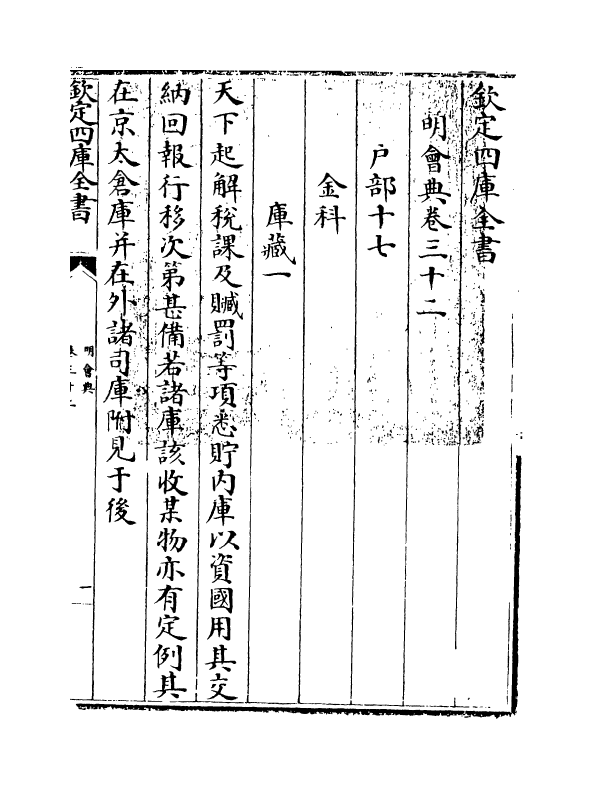 欽定四庫全書
明會典卷三十二
戶部十七
金科
庫藏一
天下起解稅課及贓罰等項悉貯内庫以資國用其交
納回報行移次第甚備若諸庫該收某物亦有定例其
在京太倉庫并在外諸司庫附見于後
欽定四庫全書
明會典
卷三十二
一